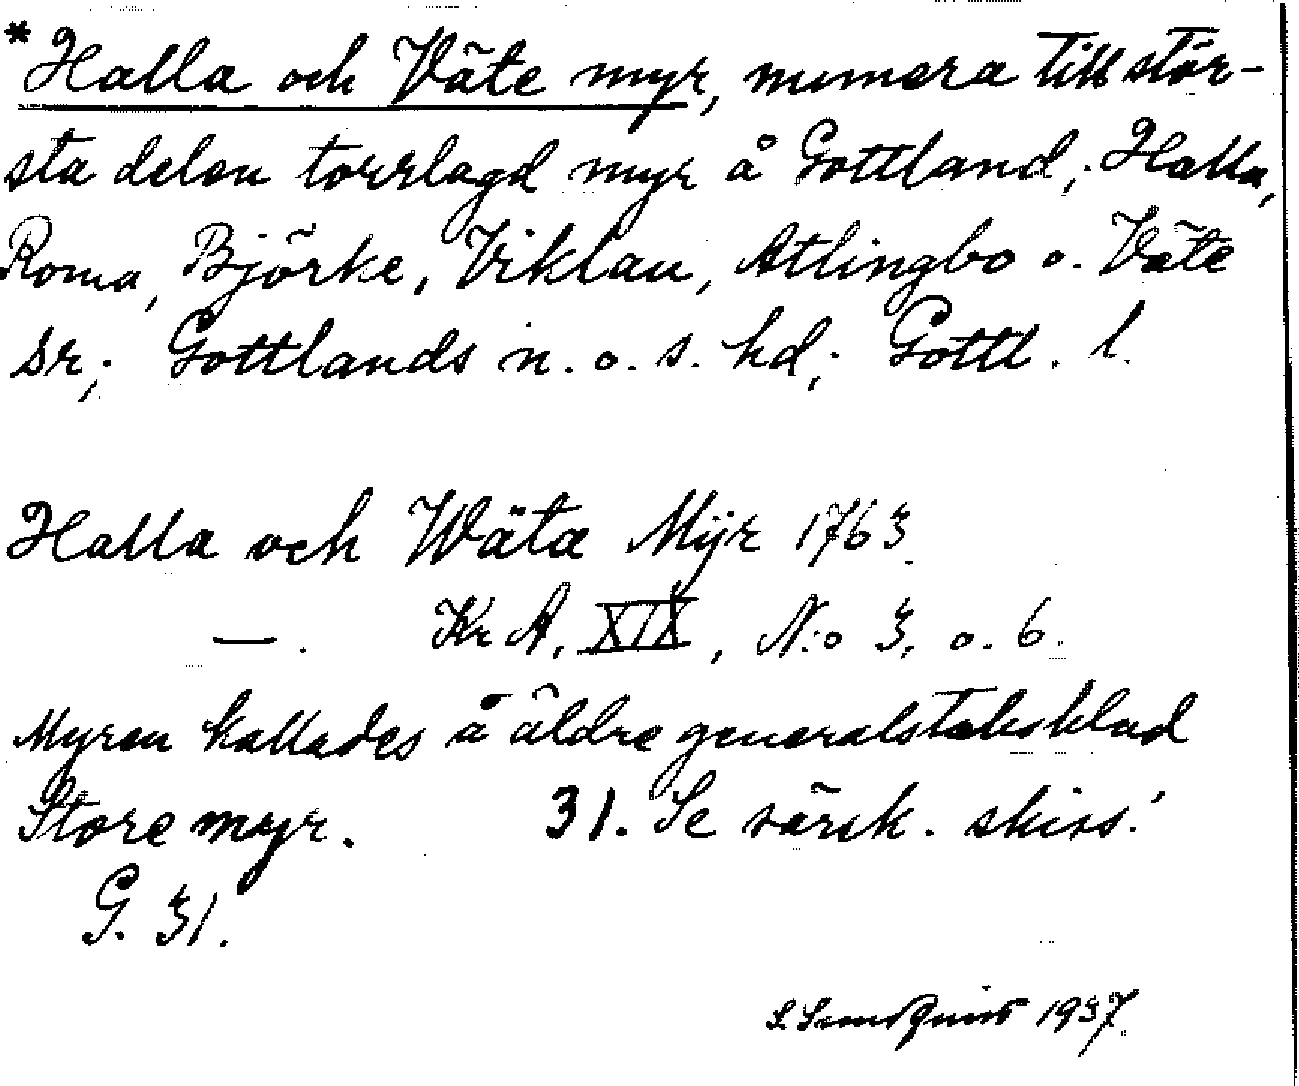 *Halla och Väte myr, numera till stör-
sta delen torrlagd myr å Gottland; Halla,
Roma, Björke, Viklau, Atlingbo o. Väte
sr; Gottlands n. o. s. hd; Gottl. l.
Halla och Wäta Mÿr 1763
—. Kr A, XIX, N:o 3. o. 6.
Myren kallades å äldre generalstabsblad
Store myr. 31. Se särsk. skiss!
G. 31.
1937.